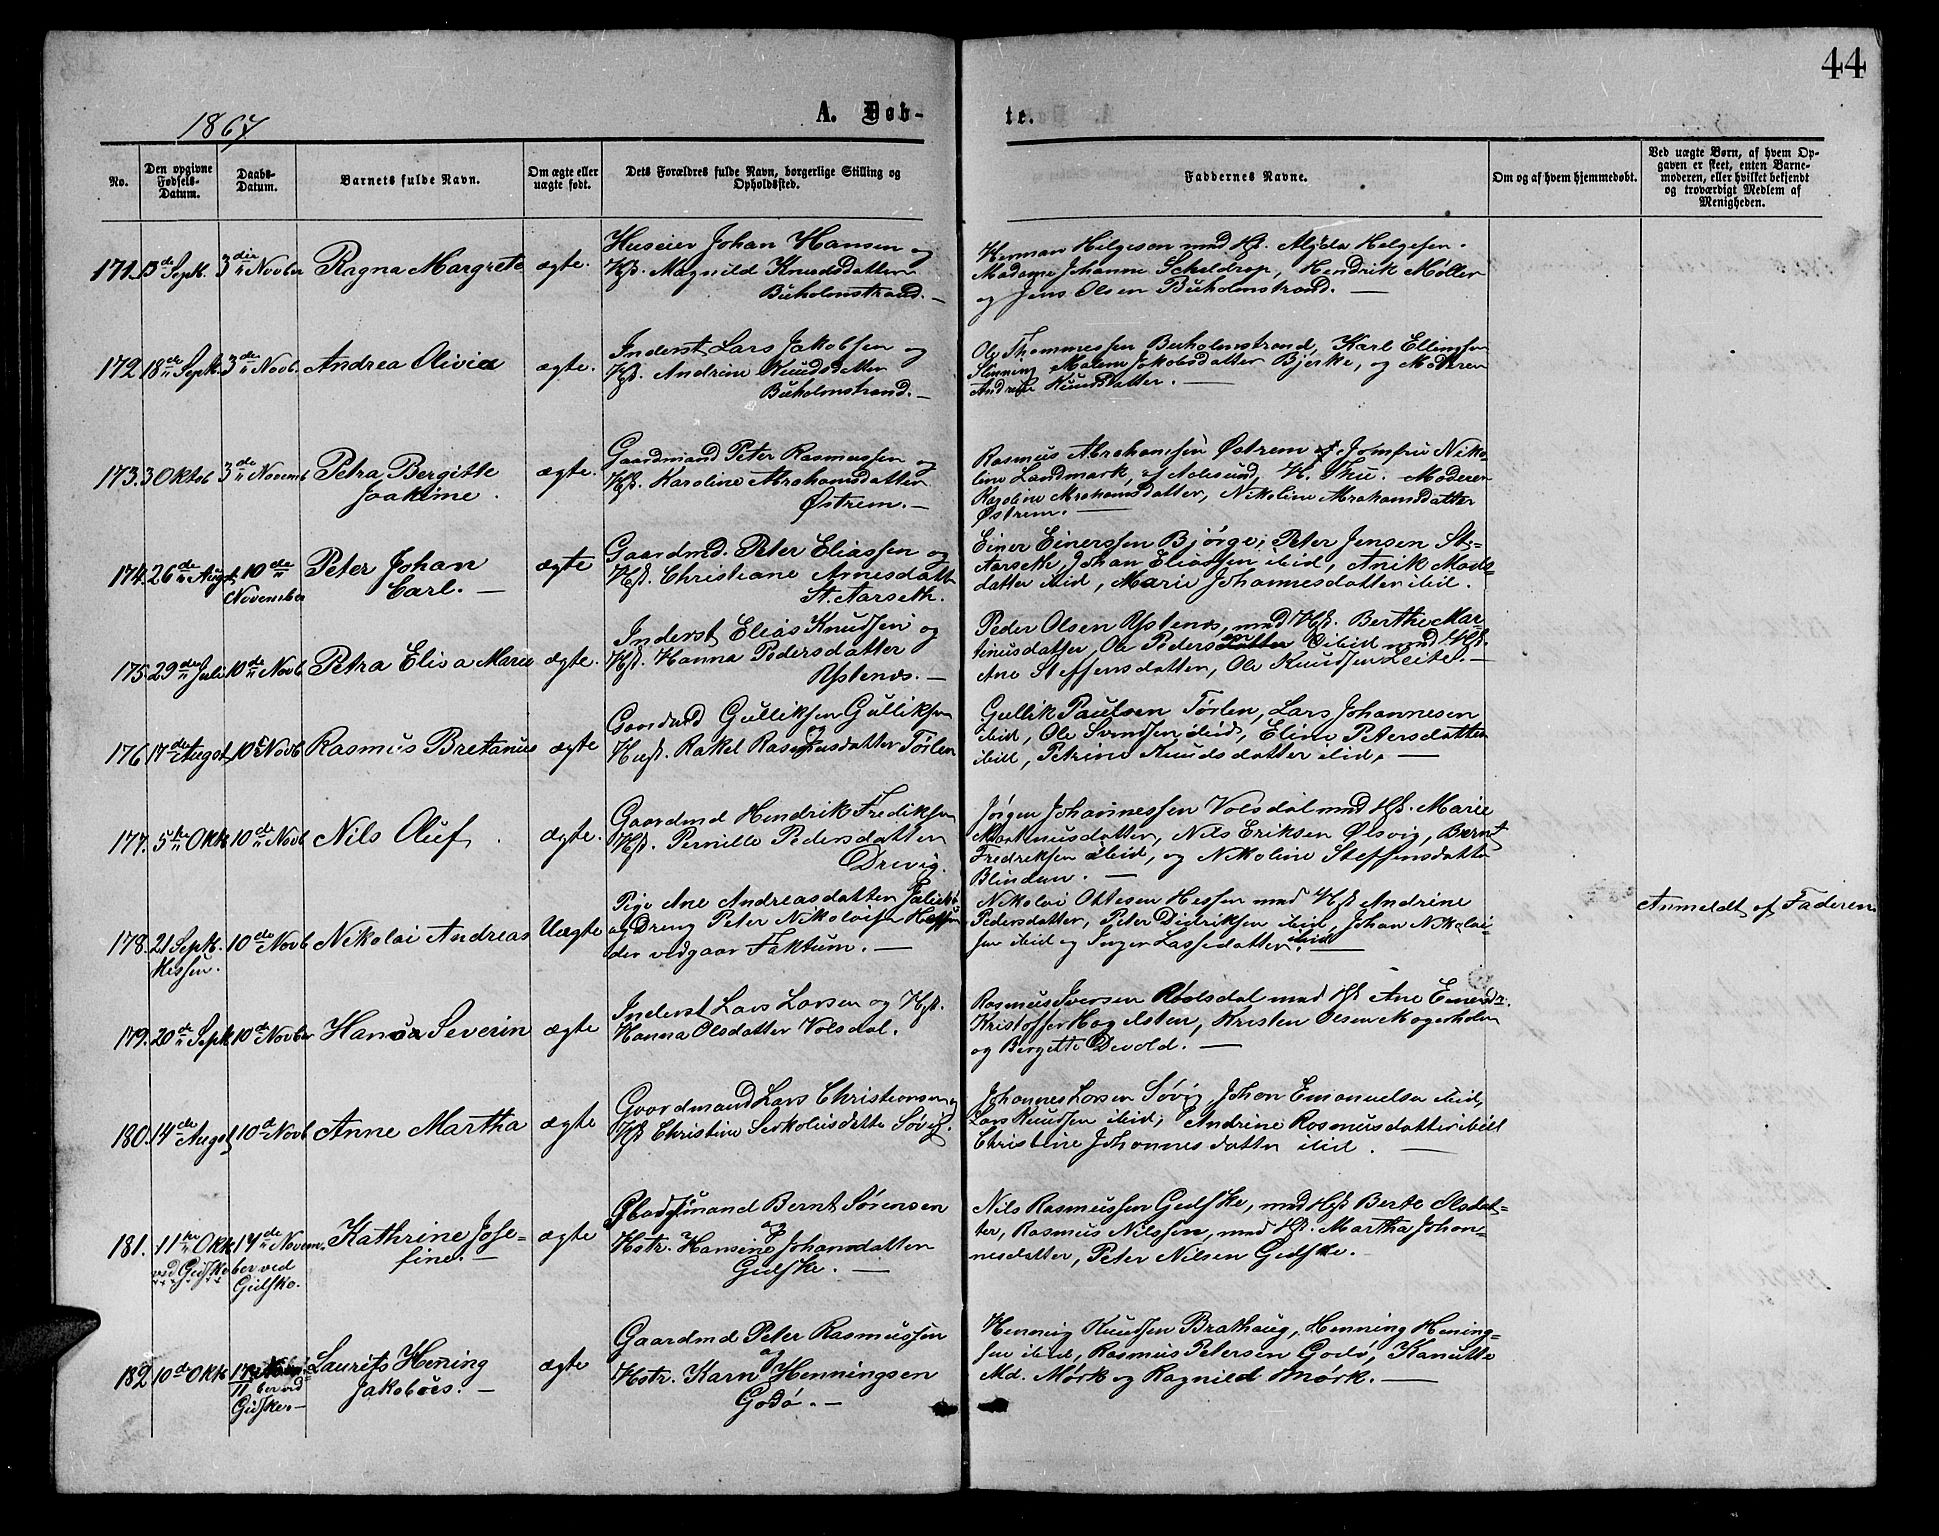 44
1867
A. Døb-
te.
No.
Den opgivne Fødsels-Datum.
Daabs-Datum.
Barnets fulde Navn.
Om ægte eller uægte født.
Dets Forældres fulde Navn, borgerlige Stilling og Opholdssted.
Faddernes Navne.
Om og af hvem hjemmedøbt.
Ved uægte Børn, af hvem Opgaven er skeet, enten Barnemoderen, eller hvilket bekjendt og troværdigt Medlem af Menigheden.
171. 13de Sept. 3die Novber Ragna Margrete ægte.
Huseier Johan Hansen og
Hst. Magnild Knudsdatter
Buholmstrand. —
Herman Helgesen med Hst. Alida Helgesen.
Madame Johanne Scheldrop, Hendrik Møller
og Jens Olsen Buholmstrand. —
172. 18de Sept. 3de Novb. Andrea Olivia ægte.
Inderst Lars Jakobsen og
Hst. Andrine Knudsdatter
Buholmstrand. —
Ole Thommessen Buholmstrand, Karl Ellingsen
Slinning Malene Jakobsdatter Bjørke, og Moderen
Andrine Knudsdatter. —
173. 3 Oktob 3de Novemb Petra Bergitte
Joakime.
ægte.
Gaardmand Peter Rasmussen og
Hst. Karoline Abrahamsdatter
Østrem. —
Rasmus Abrahamsen Østrem Jomfru Niko-
line Landmark, af Aalesund, H. Thu. Moderen
Karoline Abrahamsdatter, Nikoline Abrahamsdatter
Østrem. —
174. 26de Augst. 10de
November
Peter Johan
Carl. —
ægte
Gaardmd. Peter Eliassen og
Hst. Christiane Arnesdatt
St. Aarseth.
Einer Einerssen Bjørge; Peter Jensen St.
Aarseth, Johan Eliassen ibid, Anik Mads-
datter ibid, Marie Johannesdatter ibid.
175. 29de Juli 10de Novb Petra Elisa Marie ægte.
Inderst Elias Knudsen og
Hst. Hanna Pedersdatter
Ystenes. —
Peder Olsen Ystenes, med Hst. Berthe Mar-
tinusdatter, Ole Pedersen ibid med Hst.
Ane Steffensdatter, Ole Knudsen Leite. —
176. 17de Augst 10 Novb Rasmus Bretanus ægte
Gaardmd Gulliksen Gulliksen
og
Hust. Rakel Rasmusdatter Tørlen
Gullik Paulsen Tørlen, Lars Johannesen
ibid, Ole Svendsen ibid, Eline Petersdatter
ibid, Petrine Knudsdatter ibid. —
177. 5te Okt 10de Novb Nils Oluf ægte.
Gaardmd Hendrik Fredriksen
Hst. Pernille Pedersdatter
Drevig.
Jørgen Johannessen Volsdal med Hst. Marie
Martinusdatter, Nils Eriksen Ølsvig, Bernt
Fredriksen ibid, og Nikoline Steffensdatter
Blindem. —
178. 21 Sept.
Hessen.
10de Novb Nikolai Andreas Uægte
Pige Ane Andreasdatter
og Dreng Peter Nikolaisen Hessen
der vedgaar Faktum. —
Nikolai Ottesen Hessen med Hst Andrine
Pedersdatter, Peter Didriksen ibid, Johan Nikolai-
sen ibid og Inger Lassedatter ibid
Anmeldt af Faderen
179. 20de Sept 10de Novber Hans Severin ægte
Inderst Lars Larsen og Hst.
Hanna Olsdatter Volsdal.
Rasmus Iversen Volsdal med Hst Ane
Kristoffer Hagelsten, Kristen Olsen Mogerholm
og Bergette Devold. —
180. 14de Augst 10de Novb Anne Martha ægte
Gaardmand Lars Christiansen og
Hst Christine datter Søvig.
Johannes Larsen Søvig Johan Emanuelsen ibid,
Lars Knudsen ibid, Andrine Rasmusdatter ibid
Christine Johannesdatter ibid. —
181. 11te Okt
ved Gidske
17de Novem-
ber ved
Gidske.
Kathrine Jose-
fine. —
ægte
mand Bernt Sørensen
og
Hstr. Hansine Johansdatter
Gidske. —
Nils Rasmussen Gidske, med Hst Berte Olsdat-
ter, Rasmus Nilssen, med Hst. Martha Johan-
nesdatter, Peter Nilsen Gidske.
182 10de Okt 17
ber ved
Gidske. —
Laurits Hening
Jakobus. —
ægte
Gaardmd Peter Rasmussen
og
Hstr. Karn Henningsen
Godø. —
Henning Knudsen Brathaug, Henning Hening-
sen ibid, Rasmus Petersen Godø, Kanutte
Md. Mørk og Ragnild Mørk. —